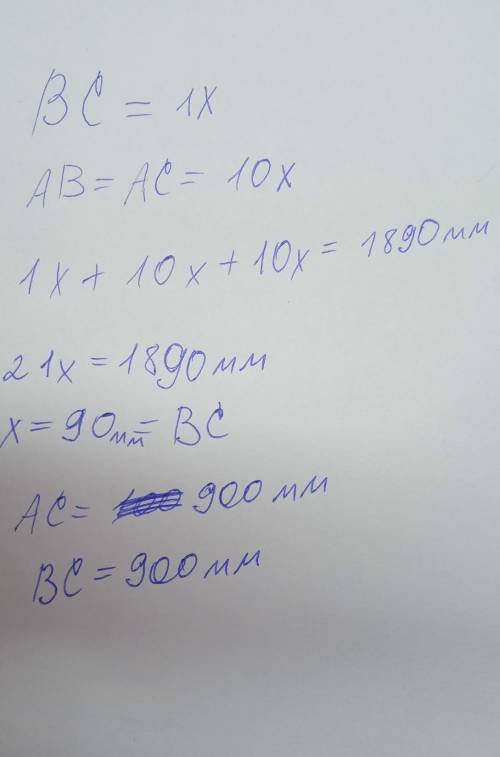 BC = 1x
AB = AC = 10x
1x + 10x + 10x = 1890мм
21x = 1890мм
x = 90мм = BC
AC = 900мм
BC = 900мм